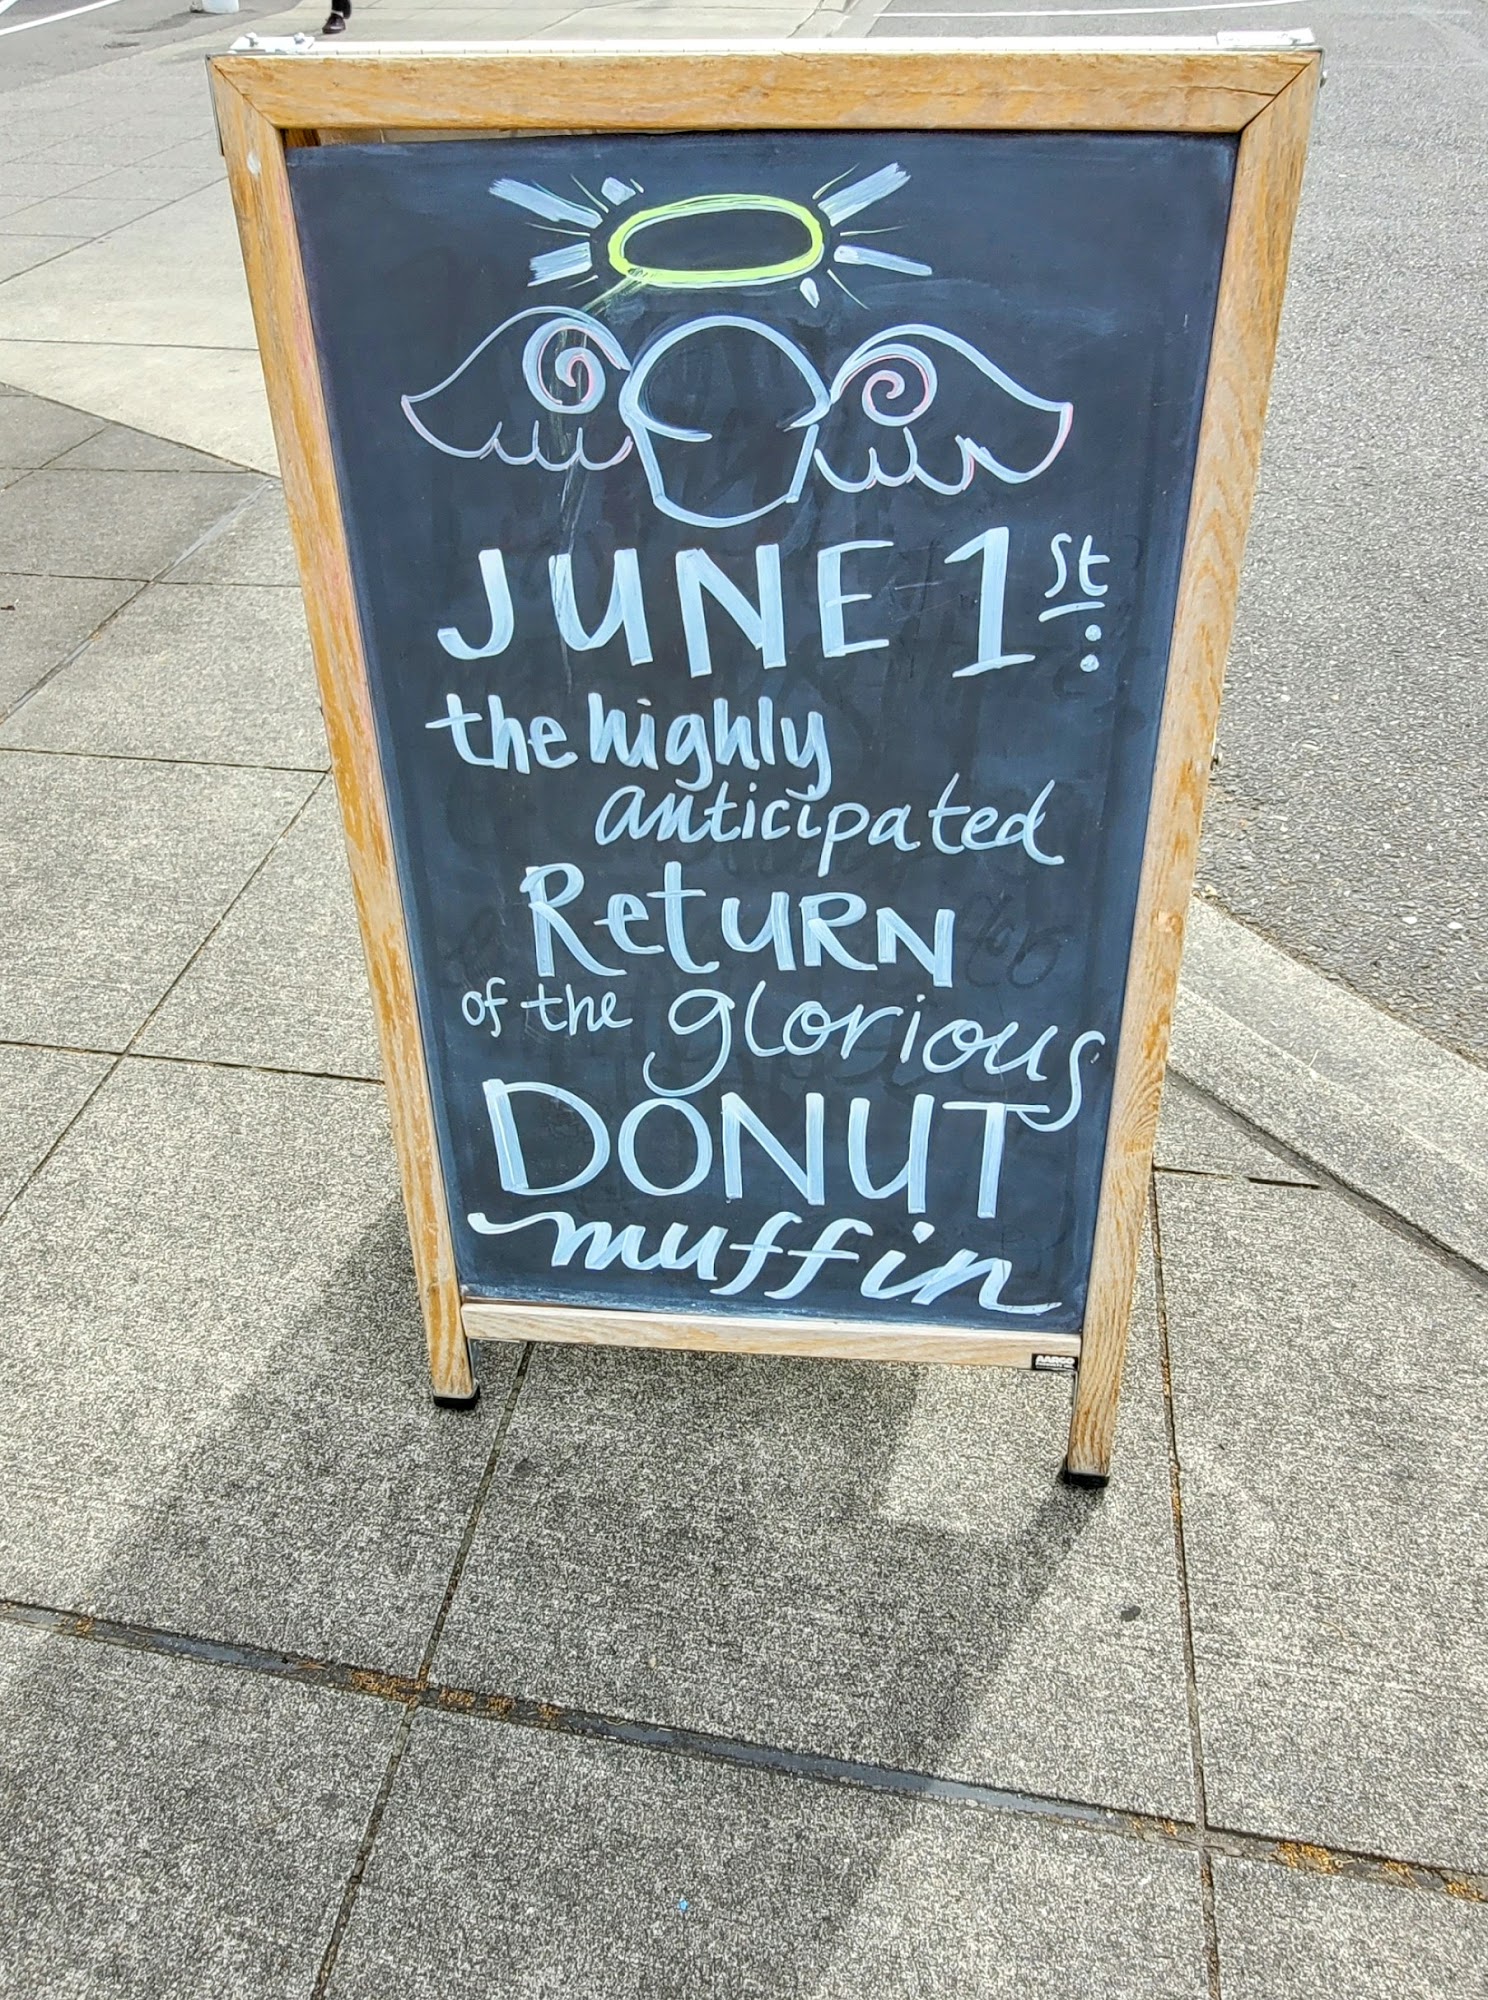 JUNE 1st:
the highly
anticipated
Return
of the glorious
DONUT
muffin
AARCO